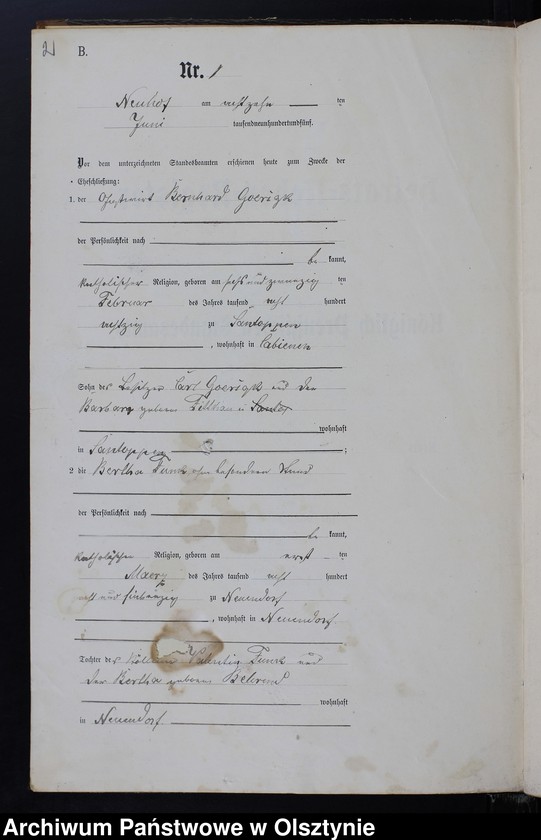 2
B.
Nr. 1
Neuhof am achtzehn ten
Juni tausendneunhundertundfünf.
Vor dem unterzeichneten Standesbeamten erschienen heute zum Zwecke der
Eheschließung:
1. der Bernhard Goerigk
der Persönlichkeit nach
be kannt,
katholischer Religion, geboren am sechs und zwanzig ten
Februar des Jahres tausend acht hundert
achtzig zu Santoppen
, wohnhaft in
Sohn des Besitzer Carl Goerigk und der
Barbara geborene
wohnhaft
in Santoppen ;
2 die Bertha Funk ohne besonderen Stand
der Persönlichkeit nach
be kannt,
katholischen Religion, geboren am erst ten
Maerz des Jahres tausend acht hundert
acht und siebenzig zu Neuendorf
, wohnhaft in Neuendorf
Tochter des Funk und
der Bertha geborene Behrend
wohnhaft
in Neuendorf
Archiwum Państwowe w Olsztynie